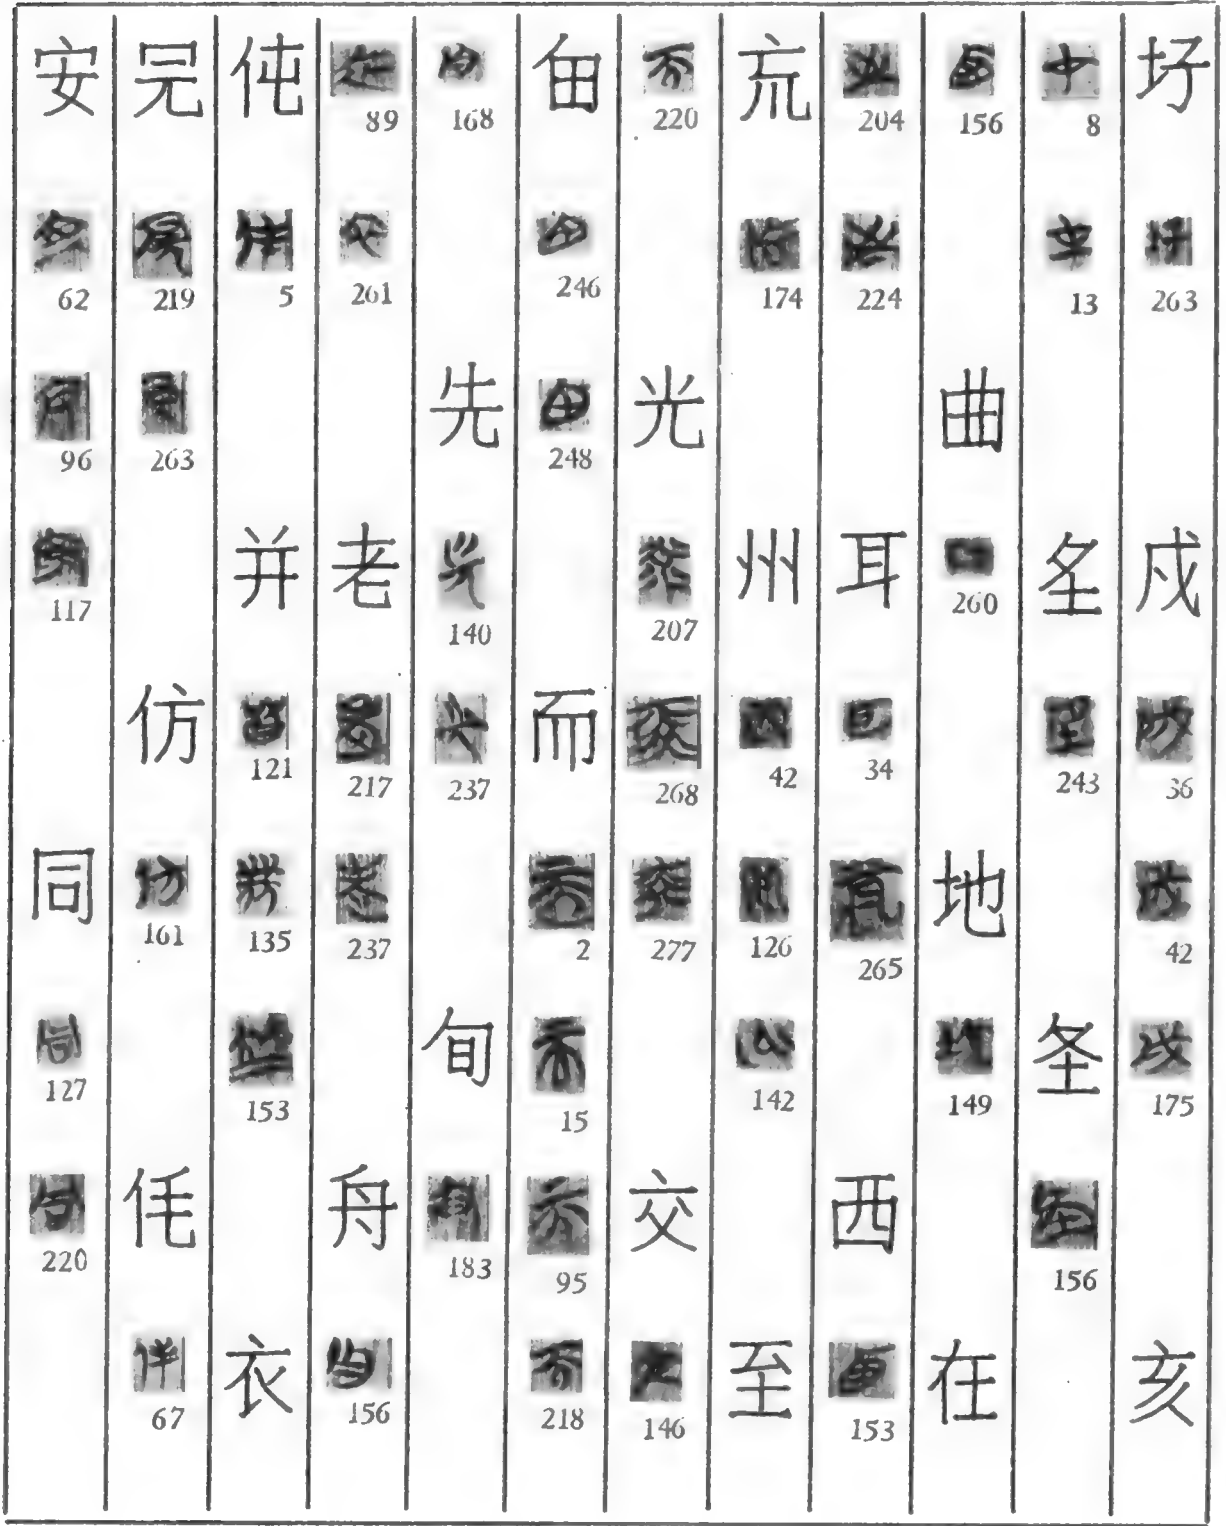 263 戍 36 42 175 亥
8 13 243 156
156 曲 260 地 149 在
204 224 耳 34 265 西 153
巟 174 州 42 126 142 至
220 光 207 268 277 交 146
246 248 而 2 15 95 218
168 先 140 237 旬 183
89 261 老 217 237 舟 156
伅 5 并 121 135 153 衣
219 263 仿 161 67
安 62 96 117 同 127 220